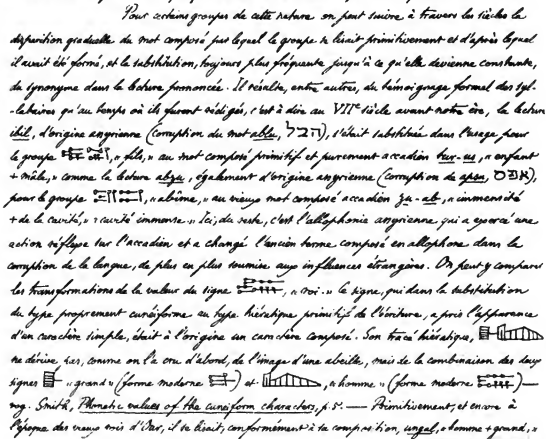 Pour certains groupes de cette nature on peut suivre à travers les siècles la
disparition graduelle du mot composé par lequel le groupe se lisait primitivement et d'après lequel
il avait été formé, et la substitution, toujours plus fréquente jusqu'à ce qu'elle devienne constante,
du synonyme dans la lecture prononcée. Il résulte, entre autres, du témoignage formel des syl-
-labaires qu'au temps où ils furent rédigés, c'est à dire au VIIe siècle avant notre ère, la lecture
ibil, d'origine assyrienne (corruption du mot ablu, הבל), s'était substituée dans l'usage pour
le groupe , « fils, » au mot composé primitif et purement accadien tur-us, « enfant
+ mâle, » comme la lecture abzu, également d'origine assyrienne (corruption de apsu, אפס),
pour le groupe , « abîme, » au vieux mot composé accadien zu-ab, « immensité
+ de la cavité, » « cavité immense. » Ici, du reste, c'est l'allophonie assyrienne qui a exercé une
action réflexe sur l'accadien et a changé l'ancien terme composé en allophone dans la
corruption de la langue, de plus en plus soumise aux influences étrangères. On peut y comparer
les transformations de la valeur du signe , « roi. » Le signe, qui dans la substitution
du type proprement cunéiforme au type hiératique primitif de l'écriture, a pris l'apparence
d'un caractère simple, était à l'origine un caractère composé. Son tracé hiératique,
ne dérive pas, comme on l'a cru d'abord, de l'image d'une abeille, mais de la combinaison des deux
signes « grand » (forme moderne ) et , « homme » (forme moderne ) —
voy. Smith, Phonetic values of the cuneiform characters, p. 5. — Primitivement, et encore à
l'époque des vieux rois d'Our, il se lisait, conformément à sa composition, ungal, « homme + grand, »